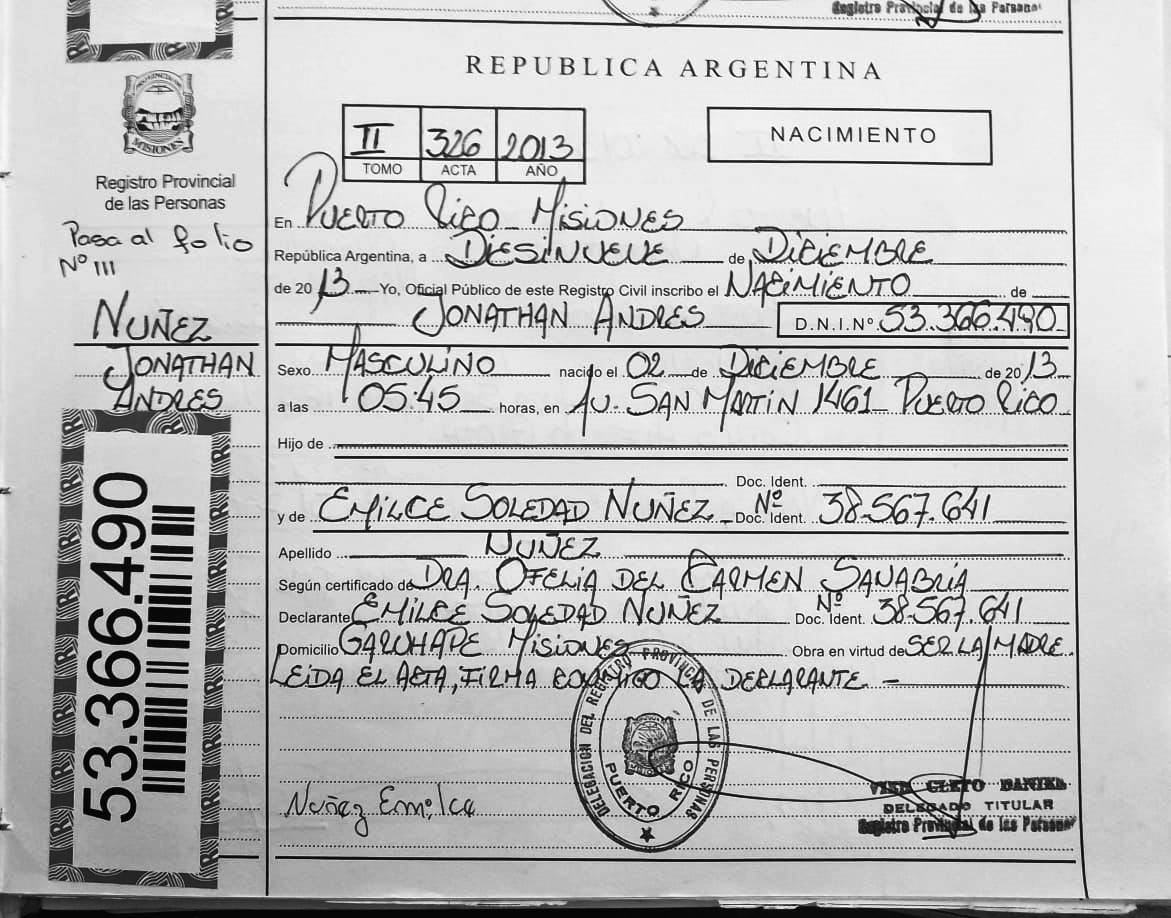 Registro Provincial de las Personas
REPUBLICA ARGENTINA
II 326 2013
TOMO ACTA AÑO
NACIMIENTO
MISIONES
Registro Provincial
de las Personas
Pasa al folio
Nº III
NUÑEZ
JONATHAN
ANDRES
53.366.490
En PUERTO RICO - MISIONES
República Argentina, a DIESINUEVE de DICIEMBRE
de 2013 Yo, Oficial Público de este Registro Civil inscribo el NACIMIENTO de
JONATHAN ANDRES D.N.I.Nº 53.366.490
Sexo MASCULINO nacido el 02 de DICIEMBRE de 2013
a las 05:45 horas, en AV. SAN MARTIN 1461 - PUERTO RICO
Hijo de
Doc. Ident.
y de EMILCE SOLEDAD NUÑEZ - Doc. Ident. Nº 38.567.641
Apellido NUÑEZ
Según certificado de DRA. OFELIA DEL CARMEN SANABRIA
Declarante EMILCE SOLEDAD NUÑEZ Doc. Ident. Nº 38.567.641
Domicilio GARUHAPE MISIONES Obra en virtud de SER LA MADRE.
LEIDA EL ACTA, FIRMA CONMIGO LA DECLARANTE -
DELEGACION DEL REGISTRO PROVINCIAL DE LAS PERSONAS
PUERTO RICO
Nuñez Emilce
CLETO DANIEL
DELEGADO TITULAR
Registro Provincial de las Personas